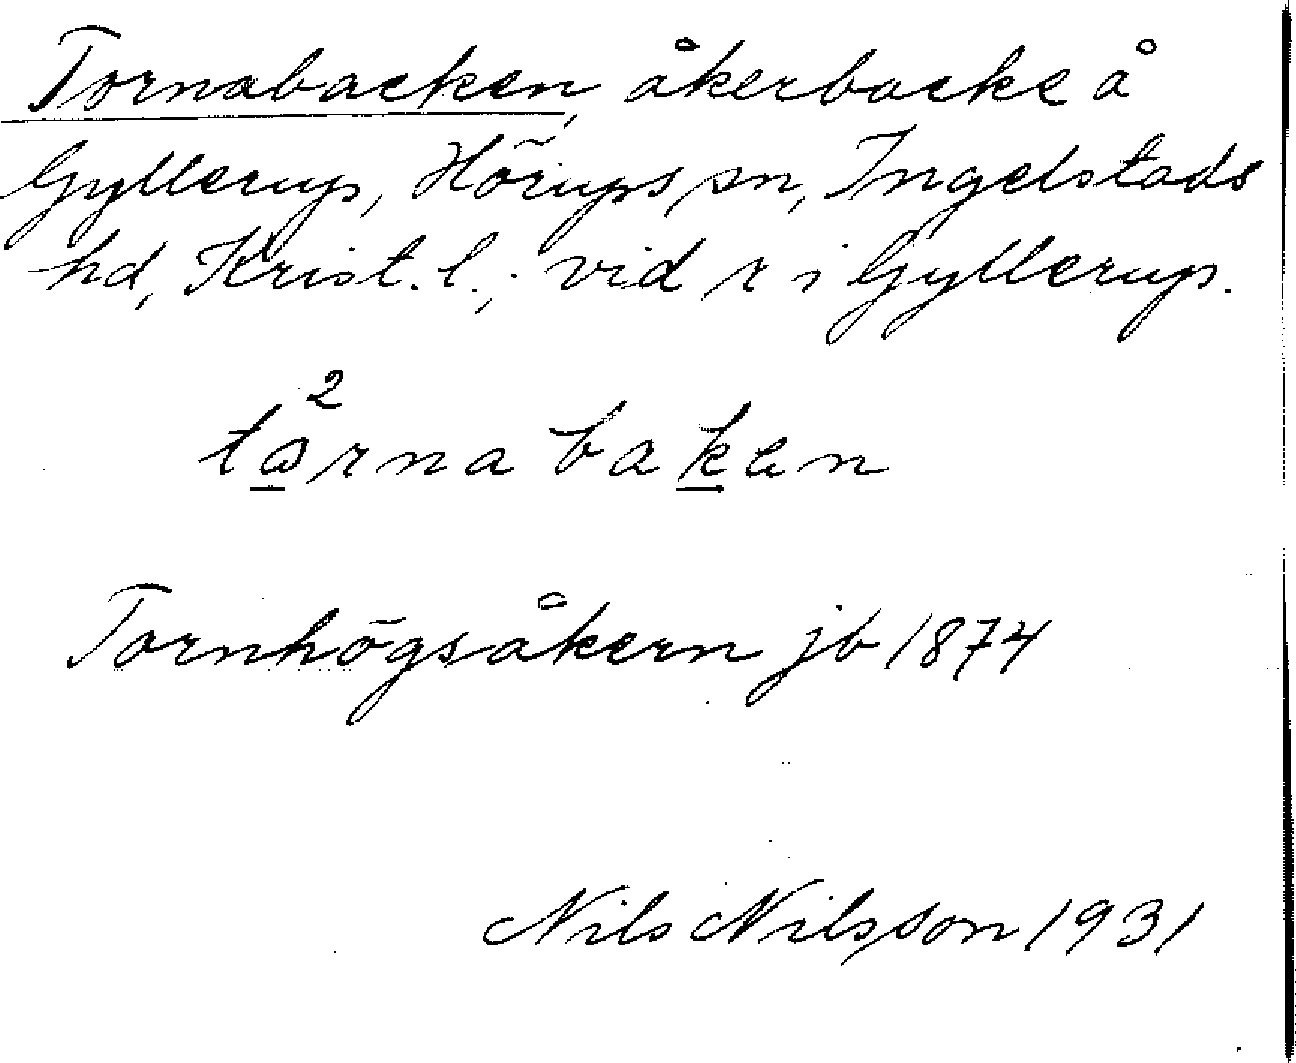 Tornabacken, åkerbacke å
Gyllerup, Hörups sn, Ingelstads
hd, Krist. l.; vid r i Gyllerup.
2
tarnabaken
Tornhögsåkern jb 1874
Nils Nilsson 1931